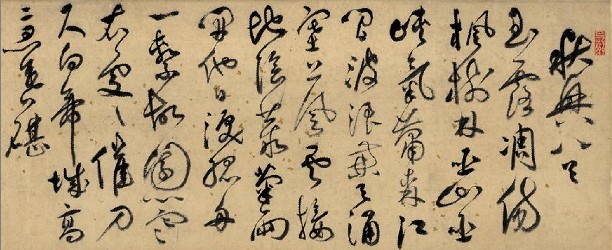 秋興八首
玉露凋傷
楓樹林巫山巫
峽氣蕭森江
間波浪兼天湧
塞上風雲接
地陰叢菊兩
開他日淚孤舟
一繫故園心寒
衣處〻催刀
尺白帝城高
急暮砧